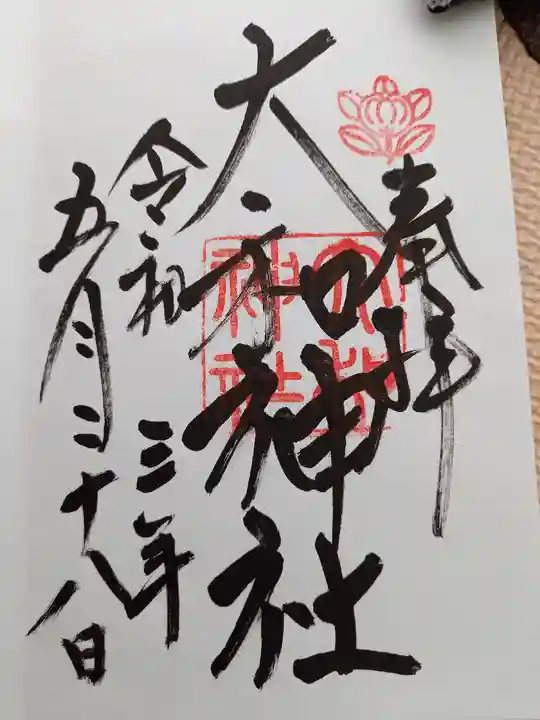 奉拝
大和神社
大和神社
令和三年
五月二十八日